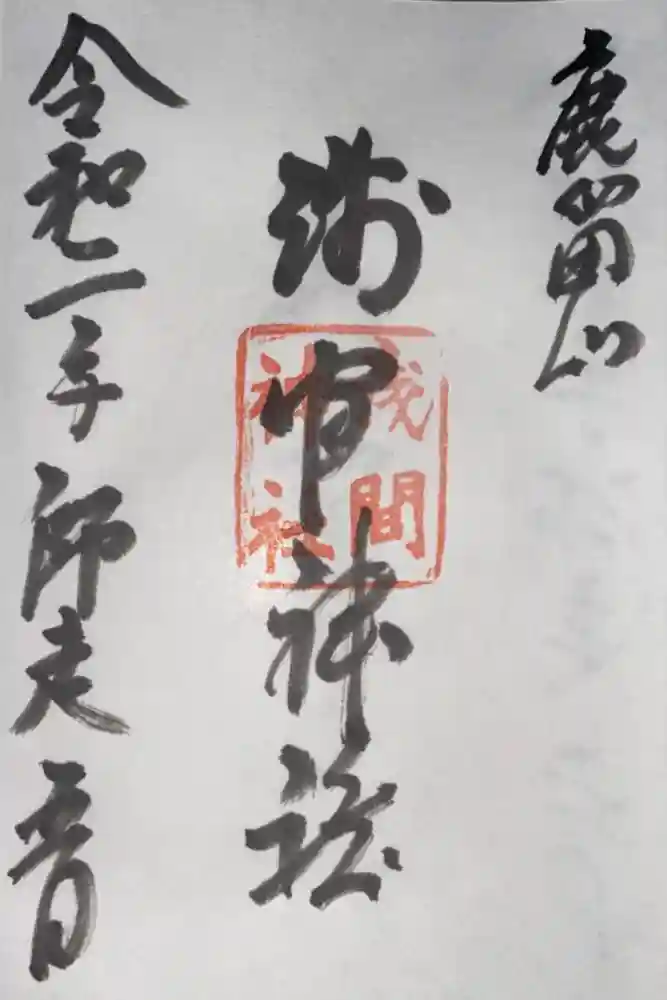 鹿留山
浅間神社
浅間
神社
令和二年師走吉日